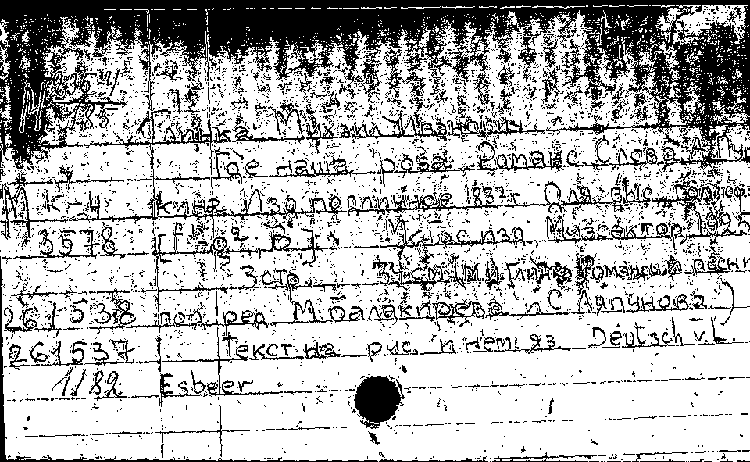 354
185
Глинка Михаил Иванович
Где наша роза. Романс Слова А. Пу
М К-4 клав. Изд подлинное 1837г. Для выс. голоса
3578 М. Гос изд. Музсектор, 1925
3 стр. 34 см (М. И. Глинка Романсы и песни
261538 под ред. М. Балакирева и С Ляпунова.)
261537 Текст на рус. и нем. яз. Deutsch v. L.
1182 Esbeer